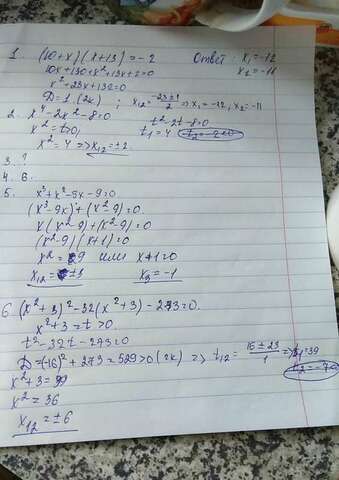 1. (10+x)(x+13)=-2 Ответ: x₁=-12
10x+130+x²+13x+2=0 x₂=-11
x²+23x+132=0
D=1 (2к) ; x₁₂=(-23±1)/2 => x₁=-12, x₂=-11
2. x⁴-2x²-8=0 t²-2t-8=0
x²=t>0, t₁=4
x²=4 => x₁₂=±2
3. ?
4. 6.
5. x³+x²-9x-9=0
(x³-9x)+(x²-9)=0
x(x²-9)+(x²-9)=0
(x²-9)(x+1)=0
x²=9 или x+1=0
x₁₂=±3 x₃=-1
6. (x²+3)²-32(x²+3)-273=0.
x²+3=t>0.
t²-32t-273=0
D=(-16)²+273=529>0(2к) => t₁₂=(16±23)/1 => t₁=39
x²+3=39 t₂=-7
x²=36
x₁₂=±6